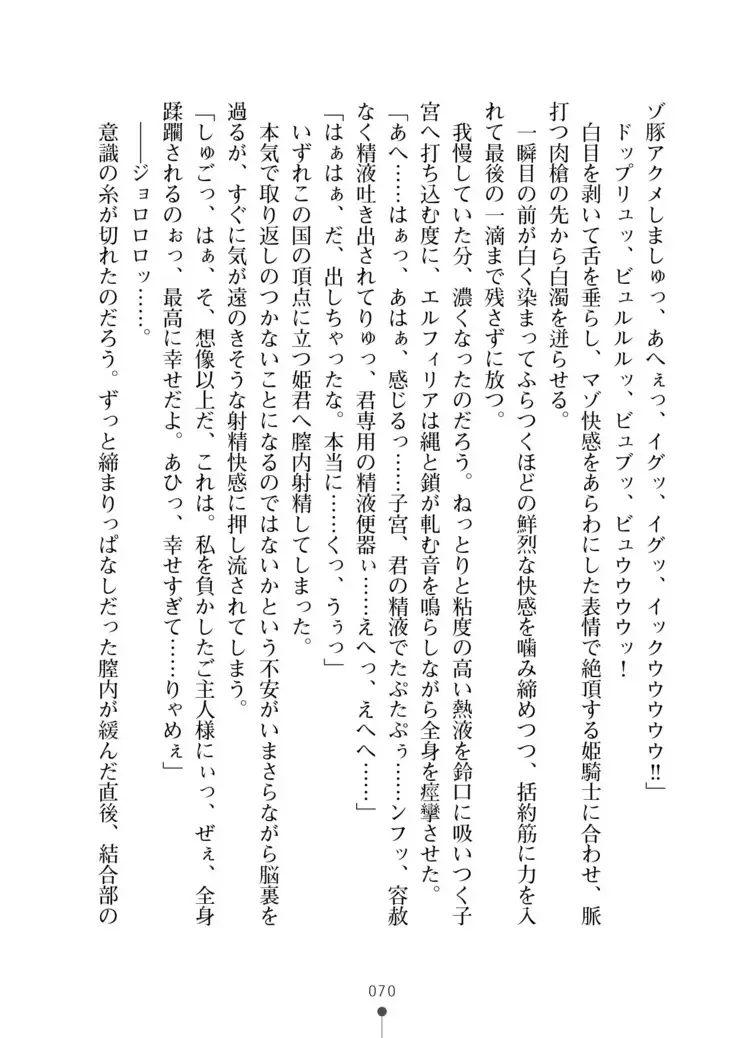 ゾ豚アクメしましゅっ、あへぇっ、イグッ、イグッ、イックウウウウウ!!」
ドップリュッ、ビュルルルッ、ビュブッ、ビュウウウウッ！
白目を剥いて舌を垂らし、マゾ快感をあらわにした表情で絶頂する姫騎士に合わせ、脈
打つ肉槍の先から白濁を迸らせる。
一瞬目の前が白く染まってふらつくほどの鮮烈な快感を噛み締めつつ、括約筋に力を入
れて最後の一滴まで残さずに放つ。
我慢していた分、濃くなったのだろう。ねっとりと粘度の高い熱液を鈴口に吸いつく子
宮へ打ち込む度に、エルフィリアは縄と鎖が軋む音を鳴らしながら全身を痙攣させた。
「あへ……はぁっ、あはぁ、感じるっ……子宮、君の精液でたぷたぷぅ……ンフッ、容赦
なく精液吐き出されてりゅっ、君専用の精液便器ぃ……えへっ、えへへ……」
「はぁはぁ、だ、出しちゃったな。本当に……くっ、うぅっ」
いずれこの国の頂点に立つ姫君へ膣内射精してしまった。
本気で取り返しのつかないことになるのではないかという不安がいまさらながら脳裏を
過るが、すぐに気が遠のきそうな射精快感に押し流されてしまう。
「しゅごっ、はぁ、そ、想像以上だ、これは。私を負かしたご主人様にぃっ、ぜぇ、全身
蹂躙されるのぉっ、最高に幸せだよ。あひっ、幸せすぎて……りゃめぇ」
――ジョロロロッ……。
意識の糸が切れたのだろう。ずっと締まりっぱなしだった膣内が緩んだ直後、結合部の
070